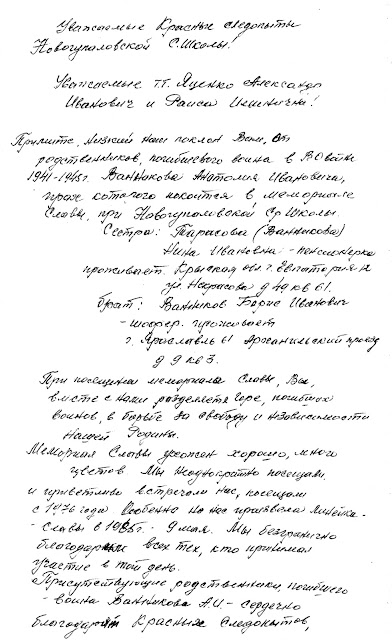 Уважаемые Красные следопыты
Новогупаловской С.Школы!
Уважаемые т.т. Яценко Александр
Иванович и Раиса Ильинична!
Примите, низкий наш поклон Вам, от
родственников, погибшего воина в ВОвойне
1941-1945г. Ванюкова Анатолия Ивановича,
прах которого покоится в мемориале
Славы, при Новогупаловской СрШколы.
Сестра: Тарасова (Ванюкова)
Нина Ивановна - пенсионерка
проживает: Крымская обл. г. Евпатория-12
ул. Некрасова д кв 61.
брат: Ванюков Борис Иванович
- шофер. проживает
г. Ярославль 61 Архангельский проезд
д 9 кв 3.
При посещении мемориала Славы, Вы,
вместе с нами разделяете горе, погибших
воинов, в борьбе за свободу и независимости
Нашей Родины.
Мемориал Славы ухожен хорошо, много
цветов Мы неоднократно посещали
и приветливо встречали нас, посещали
с 1976 года Особенно на нас произвела Линейка-
- славы в 1985г. - 9 мая. Мы безгранично
благодарны всех тех, кто принимал
участие в той день.
Присутствующие родственники, погибшего
- воина Ванюкова А.И. - сердечно
благодарят Красных Следопытов,